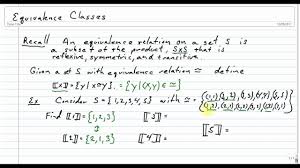 Equivalence Classes
Recall An equivalence relation on a set S is
a subset of the product, SxS that is
reflexive, symmetric, and transitive.
Given a set S with equivalence relation ≃ define
[[x]] = {y | x≃y}. = {y | (x,y) ∈ ≃}
Ex Consider S = {1,2,3,4,5} with ≃ =
Find [[1]] = {1,2,3} [[3]] = [[5]] =
[[2]] = {2,1,3} [[4]] =